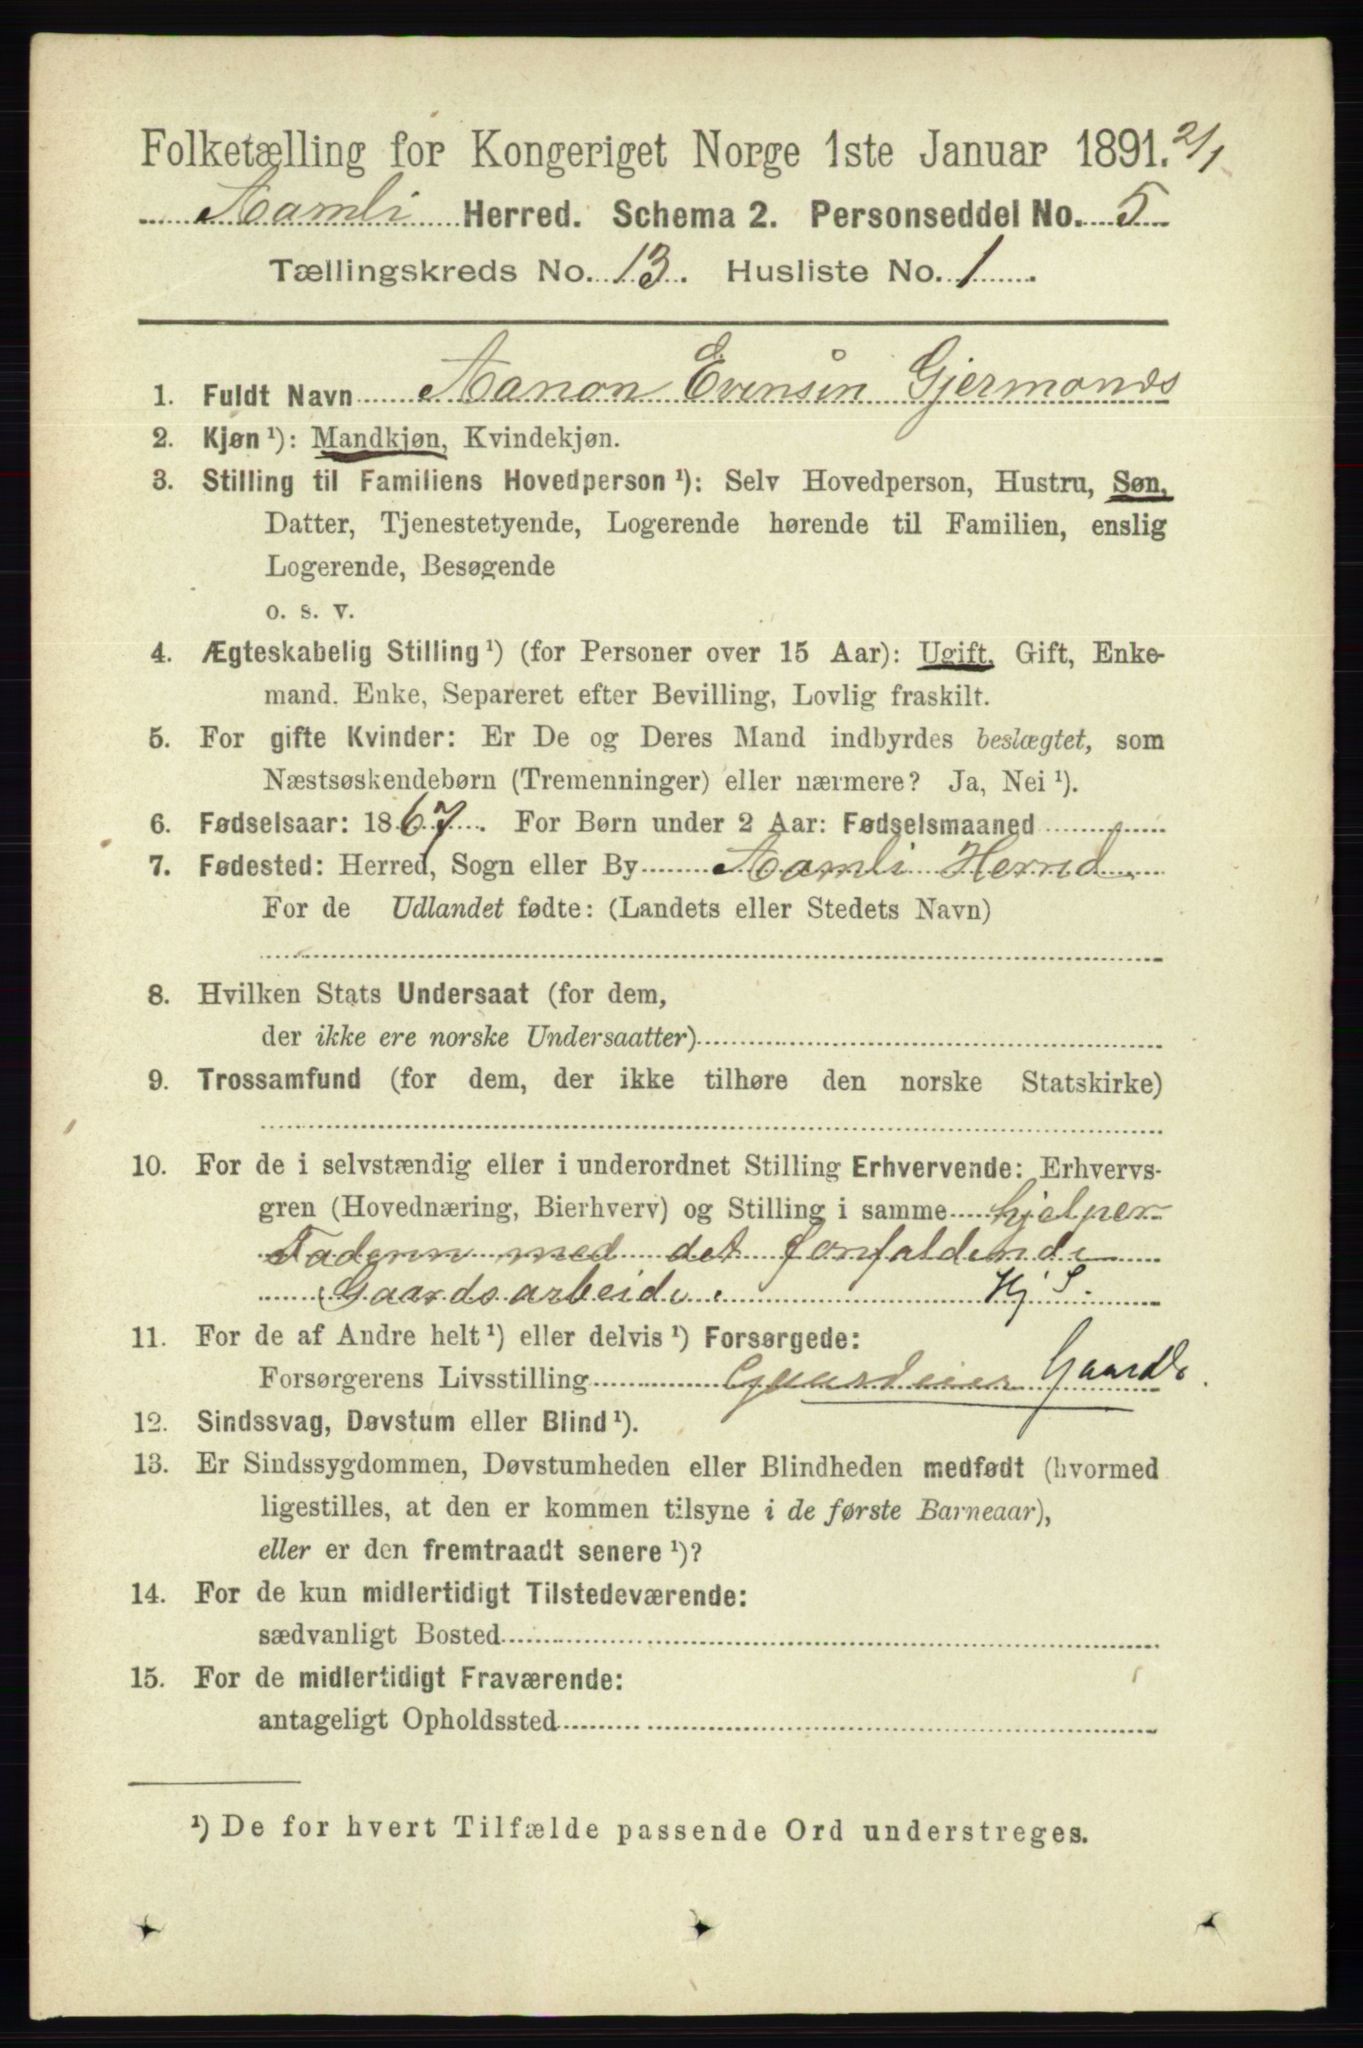 Folketælling for Kongeriget Norge 1ste Januar 1891. 2/1
Aamli Herred. Schema 2. Personseddel No. 5
Tællingskreds No. 13. Husliste No. 1
1. Fuldt Navn Aanon Evensen Gjermonds
2. Kjøn ¹): Mandkjøn, Kvindekjøn.
3. Stilling til Familiens Hovedperson ¹): Selv Hovedperson, Hustru, Søn,
Datter, Tjenestetyende, Logerende hørende til Familien, enslig
Logerende, Besøgende
o. s. v.
4. Ægteskabelig Stilling ¹) (for Personer over 15 Aar): Ugift, Gift, Enke-
mand. Enke, Separeret efter Bevilling, Lovlig fraskilt.
5. For gifte Kvinder: Er De og Deres Mand indbyrdes beslægtet, som
Næstsøskendebørn (Tremenninger) eller nærmere? Ja, Nei ¹).
6. Fødselsaar: 1867. For Børn under 2 Aar: Fødselsmaaned
7. Fødested: Herred, Sogn eller By Aamli Herred
For de Udlandet fødte: (Landets eller Stedets Navn)
8. Hvilken Stats Undersaat (for dem,
der ikke ere norske Undersaatter)
9. Trossamfund (for dem, der ikke tilhøre den norske Statskirke)
10. For de i selvstændig eller i underordnet Stilling Erhvervende: Erhvervs-
gren (Hovednæring, Bierhverv) og Stilling i samme hjelper
Faderen med det forfaldende
Gaardsarbeide. Hj S.
11. For de af Andre helt ¹) eller delvis ¹) Forsørgede:
Forsørgerens Livsstilling Gaardeier Gaardb.
12. Sindssvag, Døvstum eller Blind ¹).
13. Er Sindssygdommen, Døvstumheden eller Blindheden medfødt (hvormed
ligestilles, at den er kommen tilsyne i de første Barneaar),
eller er den fremtraadt senere ¹)?
14. For de kun midlertidigt Tilstedeværende:
sædvanligt Bosted
15. For de midlertidigt Fraværende:
antageligt Opholdssted
¹) De for hvert Tilfælde passende Ord understreges.